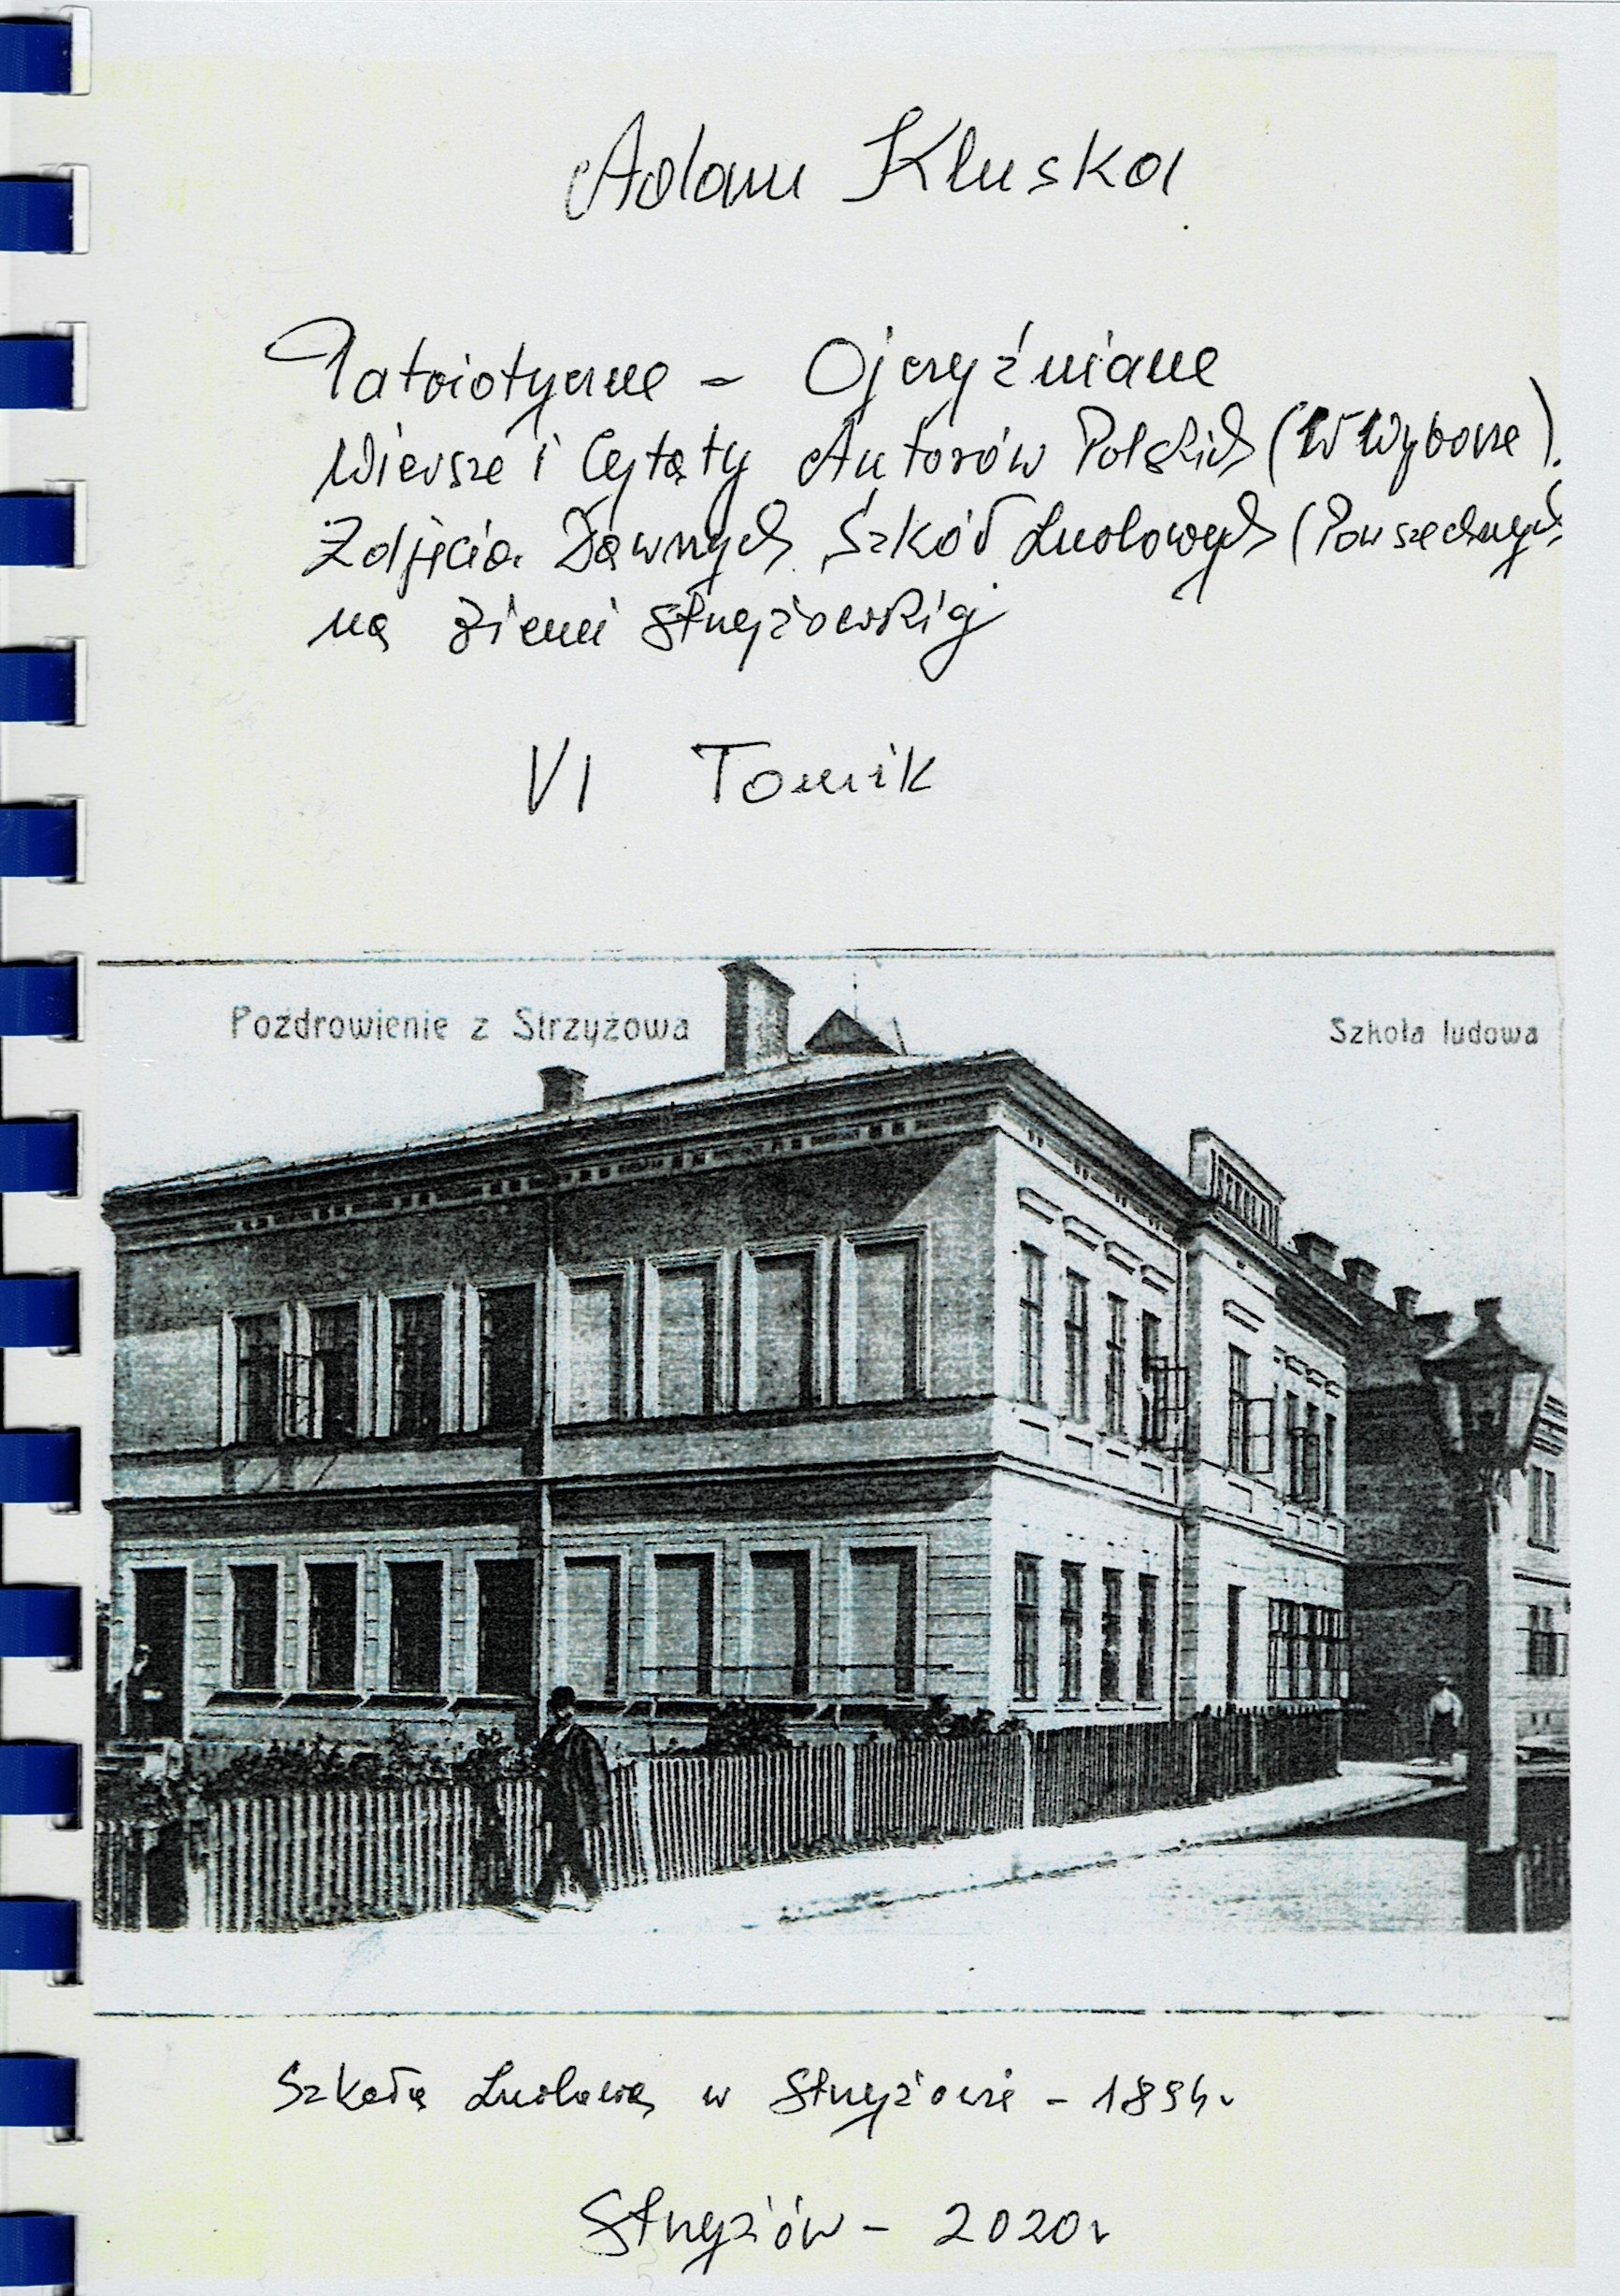 Adam Kluska
Patriotyczne - Ojczyźniane
Wiersze i Cytaty Autorów Polskich (W Wyborze).
Zdjęcia Dawnych Szkół Ludowych (Powszechnych
na ziemi strzyżowskiej
VI Tomik
Pozdrowienie z Strzyżowa
Szkoła ludowa
Szkoła Ludowa w Strzyżowie - 1894r
Strzyżów - 2020r